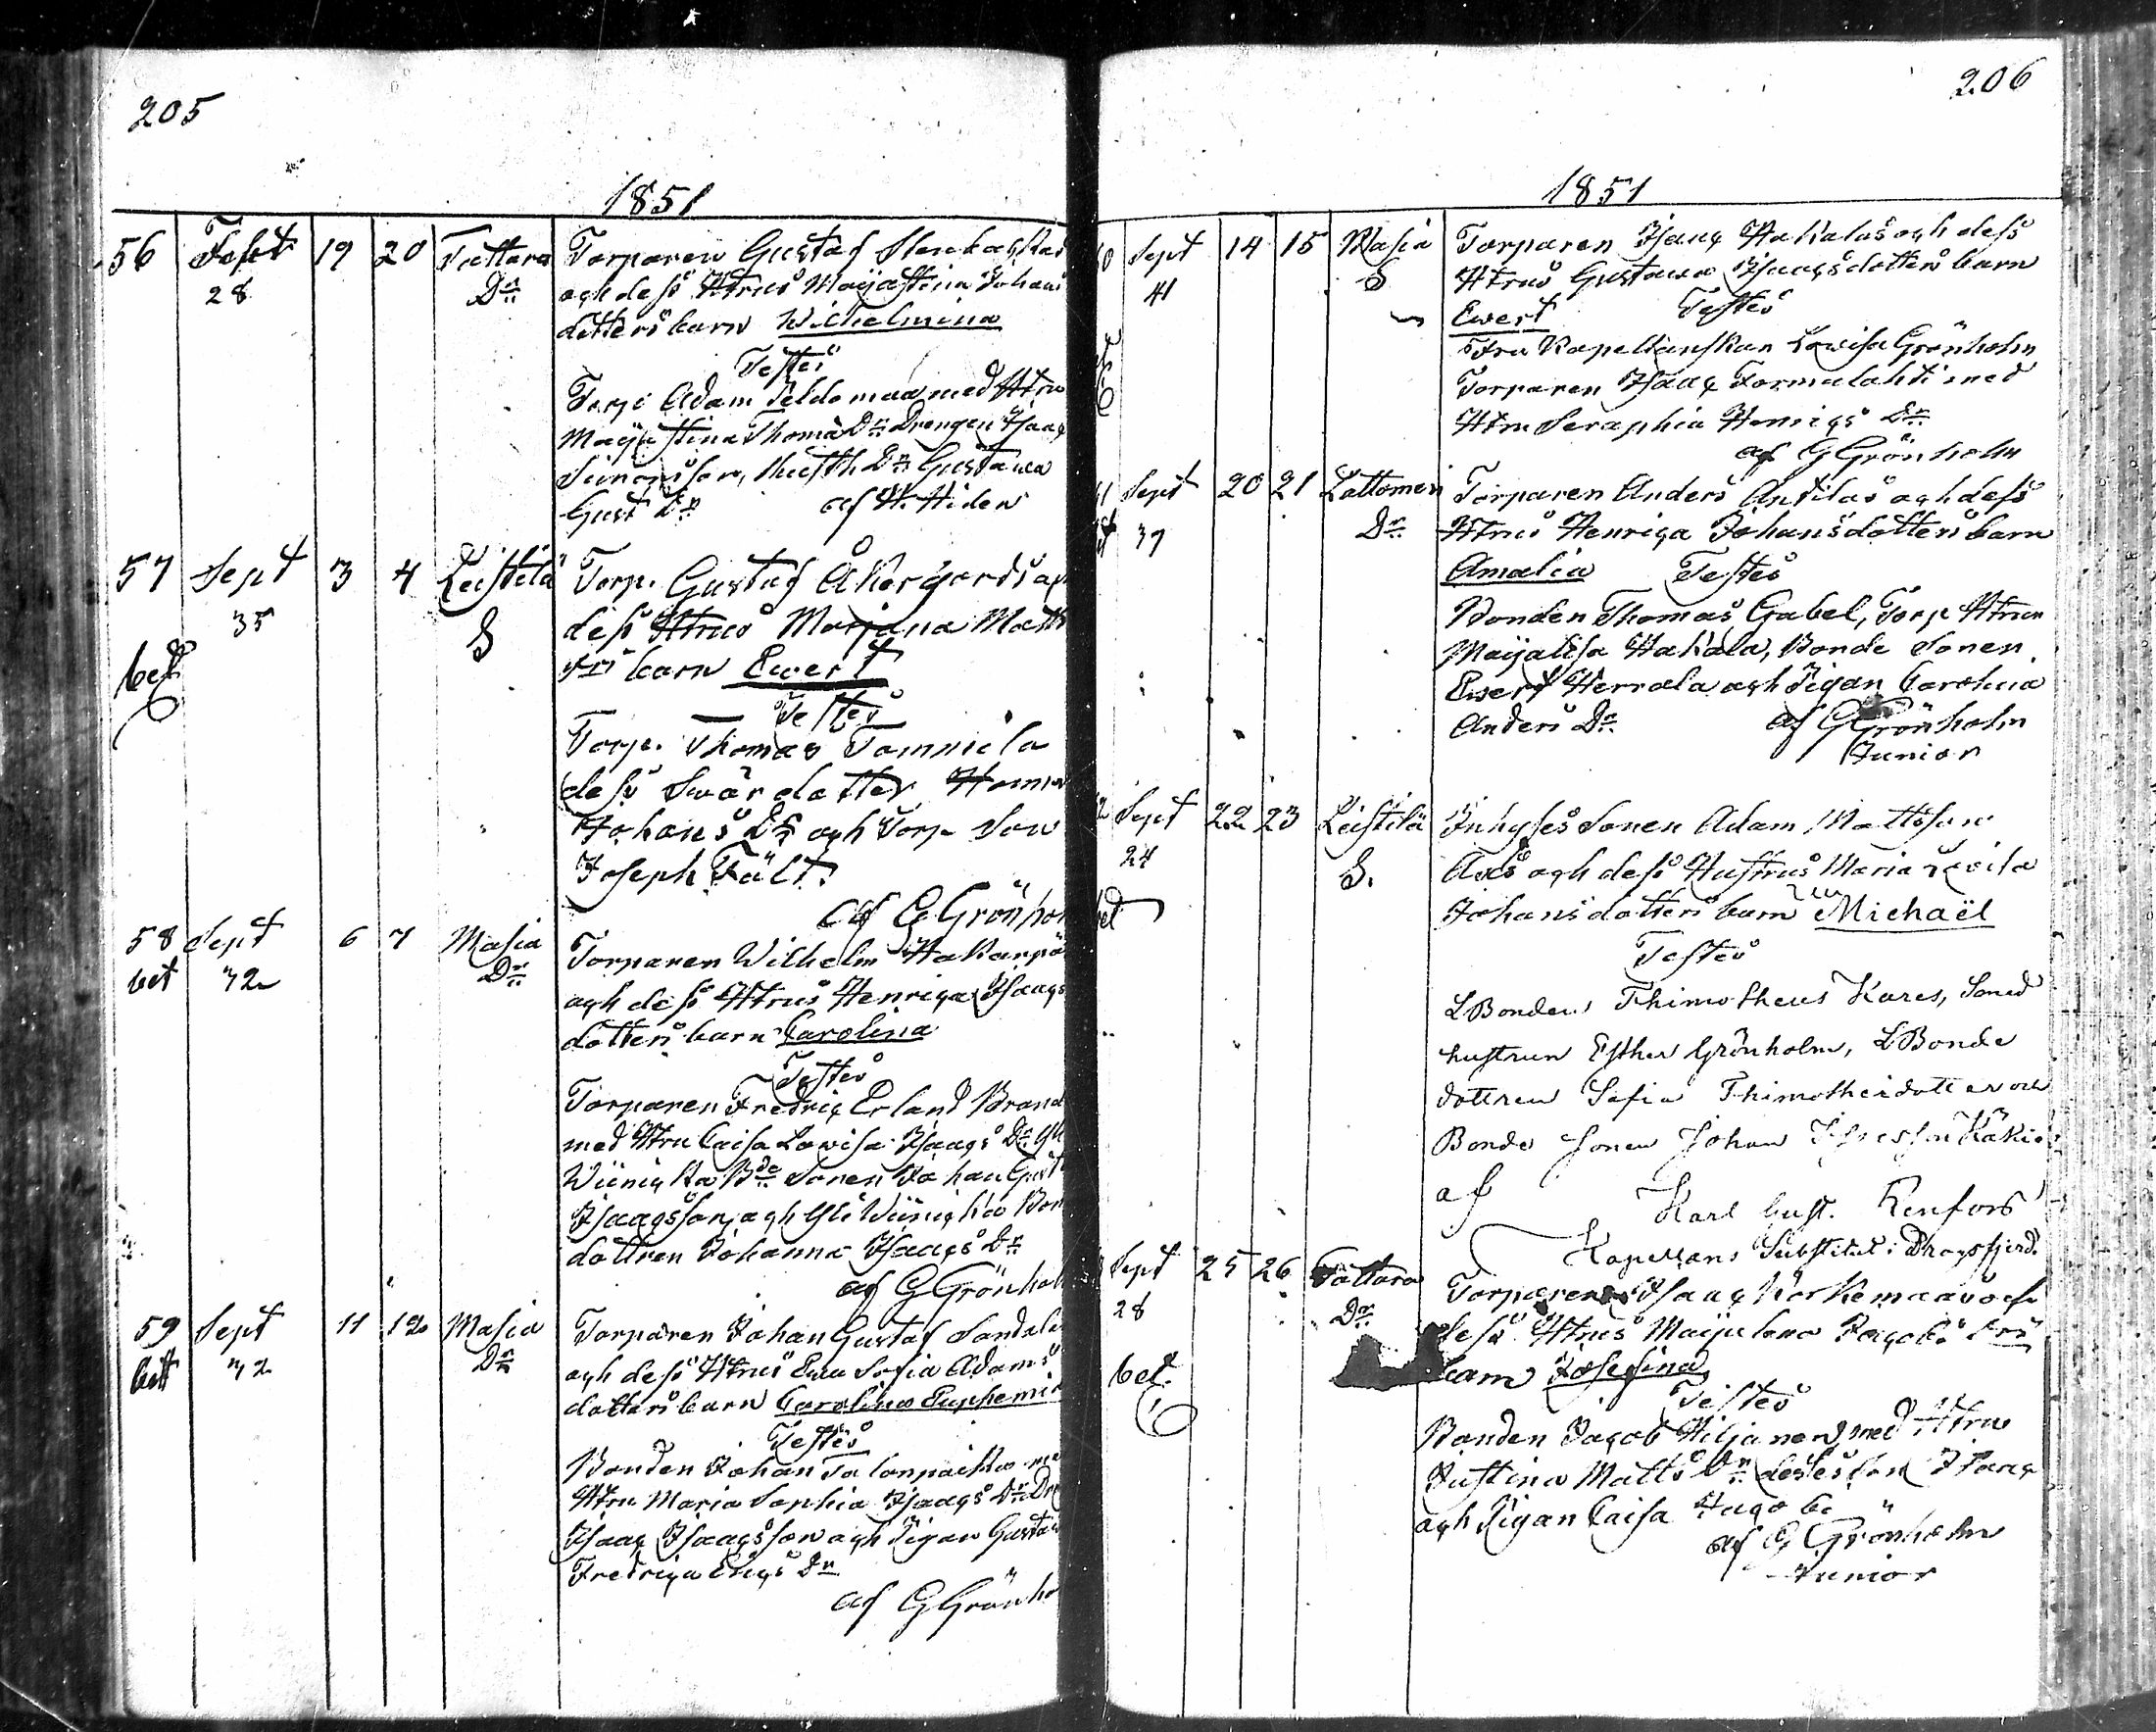 205
1851
56 Sept 19 20 Tattara Torparen Gustaf
28 Dr och dess Htrus Maijastina Johans
dotters barn Wilhelmina
Testes
Torp. Adam Peldomaa med Htru
Maijastina Thomas Dr Drengen Isaac
Simonsson, Dr Gustawa
Gust Dr af H. Hiden
57 Sept 3 4 Leistilä Torp. Gustaf Åkergerds
35 S dess Htrus Marjana Matts
bet drs barn Ewert
Testes
Torp. Thomas Tommila
dess Swärdotter
Johans Dr och Torp Son
Joseph Fält.
af G Grönhol
58 Sept 6 7 Masia Torparen Wilhelm Hakanpä
bet 32 Dr och dess Htrus Henrica Isaacs
dotters barn Carolina
Testes
Torparen Fredric Erland Brand
med Htru Caisa Lowisa Isaacs Dr
Sonen Johan Gust
Isaacsson och
dottren Johanna Isaacs Dr
af G Grönhol
59 Sept 11 12 Masia Torparen Johan Gustaf Sandels
bet 32 Dr och dess Htrus Ewa Sofia Adams
dotters barn Carolina Euphemia
Testes
Bonden Johan Talonpoika me
Htru Maria Sophia Isaacs Dr
Isaac Isaacsson och Pigan Gustaw
Fredrica Dr
af G Grönho
206
1851
Sept 14 15 Masia Torparen Isaac Hakalas och dess
41 S Htrus Gustawa Isaacsdotters barn
Ewert Testes
Fru Kapellanskan Lowisa Grönholm
Torparen Isaac Tormalahti med
Htru Seraphia Henrics Dr
af G Grönholm
Sept 20 21 Lattomeri Torparen Anders Antilas och dess
39 Dr Htrus Henrica Johansdotters barn
Amalia Testes
Bonden Thomas Gabel, Torp Htrun
Maijalisa Hakala, Bonde Sonen
Ewert Herrala och Pigan Carolina
Anders Dr af G Grönholm
Junior
Sept 22 23 Leistilä Inhyses Sonen Adam Mattsson
24 S. och dess Hustrus Maria Lovisa
bet Johansdotters barn Michaël
Testes
LBonden Thimotheus Kares, Samt
hustrun Esther Grönholm, LBonde
dottren Sofia Thimotheidotter och
Bonde Sonen Johan
af
Karl Gust. Renfors
Kapellans Substitut i Dragsfjerd.
Sept 25 26 Tattara Torparen Isaac Korkemaas och
28 Dr dess Htrus Maijalena Jacobs drs
bet. barn Josefina
Testes
Bonden Jacob Hiljanen med Htru
Justina Matts Dr Isaac
och Pigan Caisa
af G Grönholm
Junior